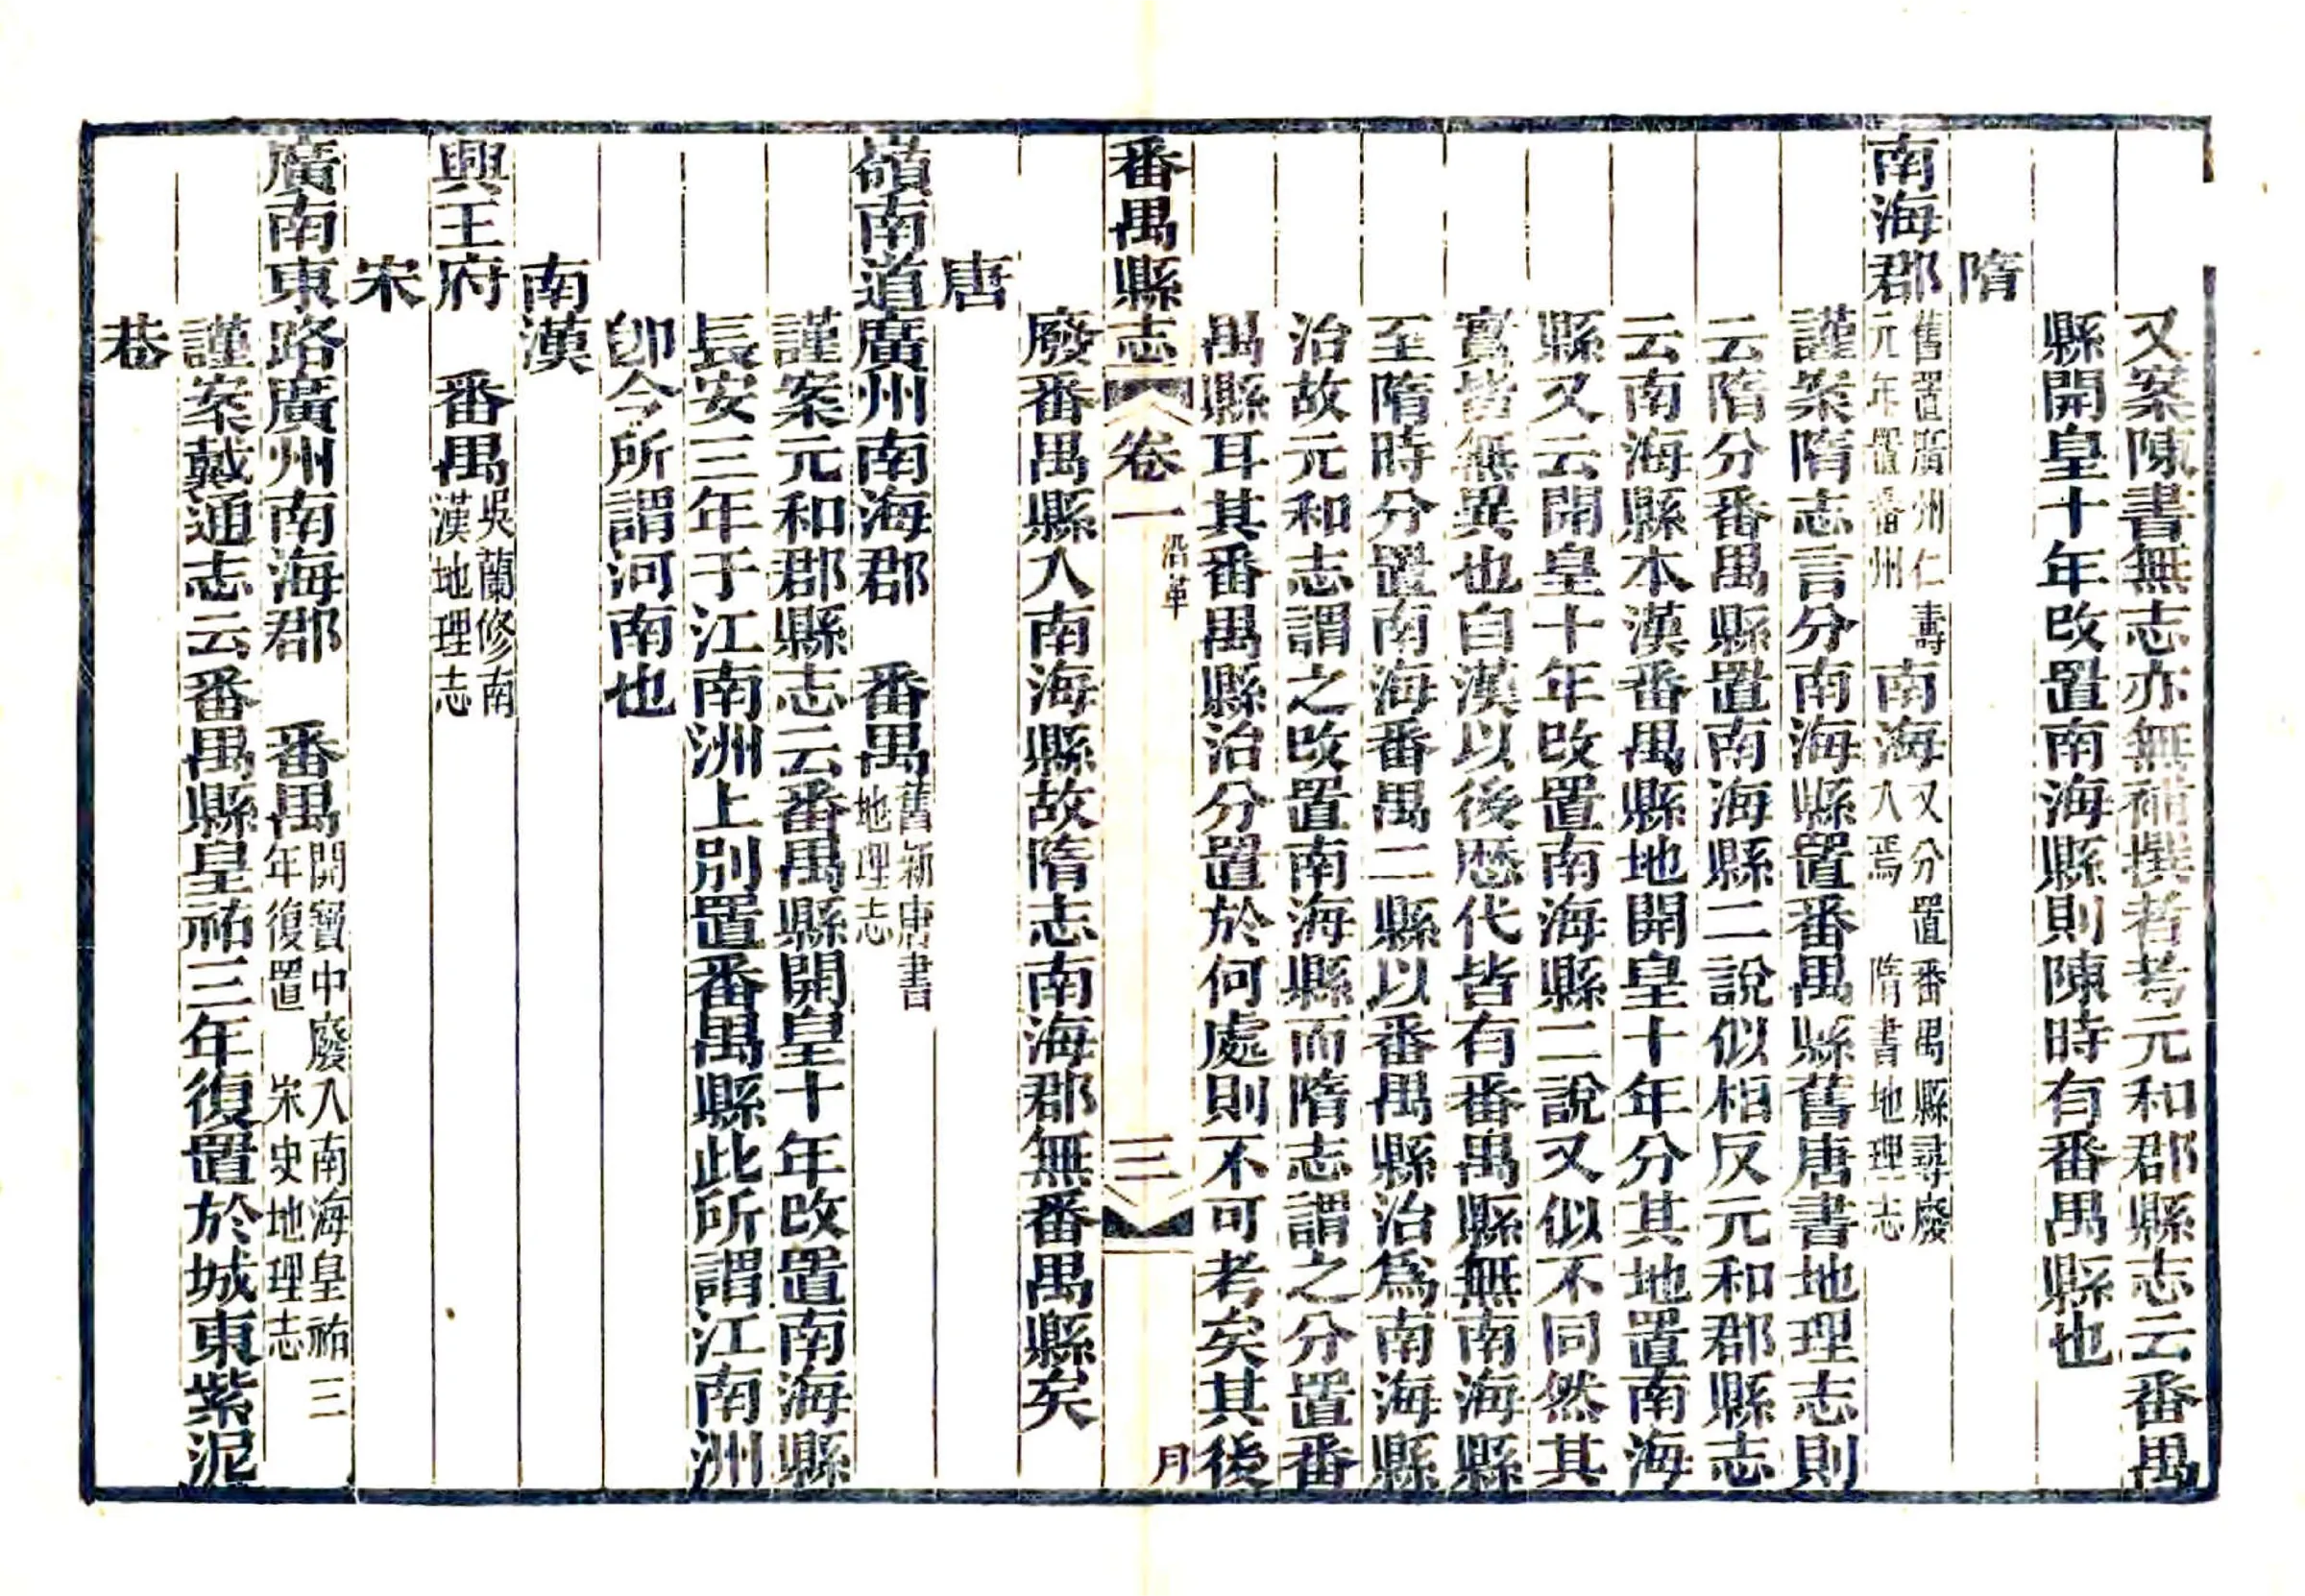 又案陳書無志亦無補撰者考元和郡縣志云番禺
縣開皇十年改置南海縣則陳時有番禺縣也
隋
南海郡舊置廣州仁壽元年置番州南海又分置番禺縣尋廢入焉 隋書地理志
謹案隋志言分南海縣置番禺縣舊唐書地理志則
云隋分番禺縣置南海縣二說似相反元和郡縣志
云南海縣本漢番禺縣地開皇十年分其地置南海
縣又云開皇十年改置南海縣二說又似不同然其
實皆無異也自漢以後歷代皆有番禺縣無南海縣
至隋時分置南海番禺二縣以番禺縣治爲南海縣
治故元和志謂之改置南海縣而隋志謂之分置番
禺縣耳其番禺縣治分置於何處則不可考矣其後
番禺縣志 卷一 沿革 三 月
廢番禺縣入南海縣故隋志南海郡無番禺縣矣
唐
嶺南道廣州南海郡 番禺舊新唐書地理志
謹案元和郡縣志云番禺縣開皇十年改置南海縣
長安三年于江南洲上別置番禺縣此所謂江南洲
卽今所謂河南也
南漢
興王府 番禺吳蘭修南漢地理志
宋
廣南東路廣州南海郡 番禺開寶中廢入南海皇祐三年復置 宋史地理志
謹案戴通志云番禺縣皇祐三年復置於城東紫泥
巷